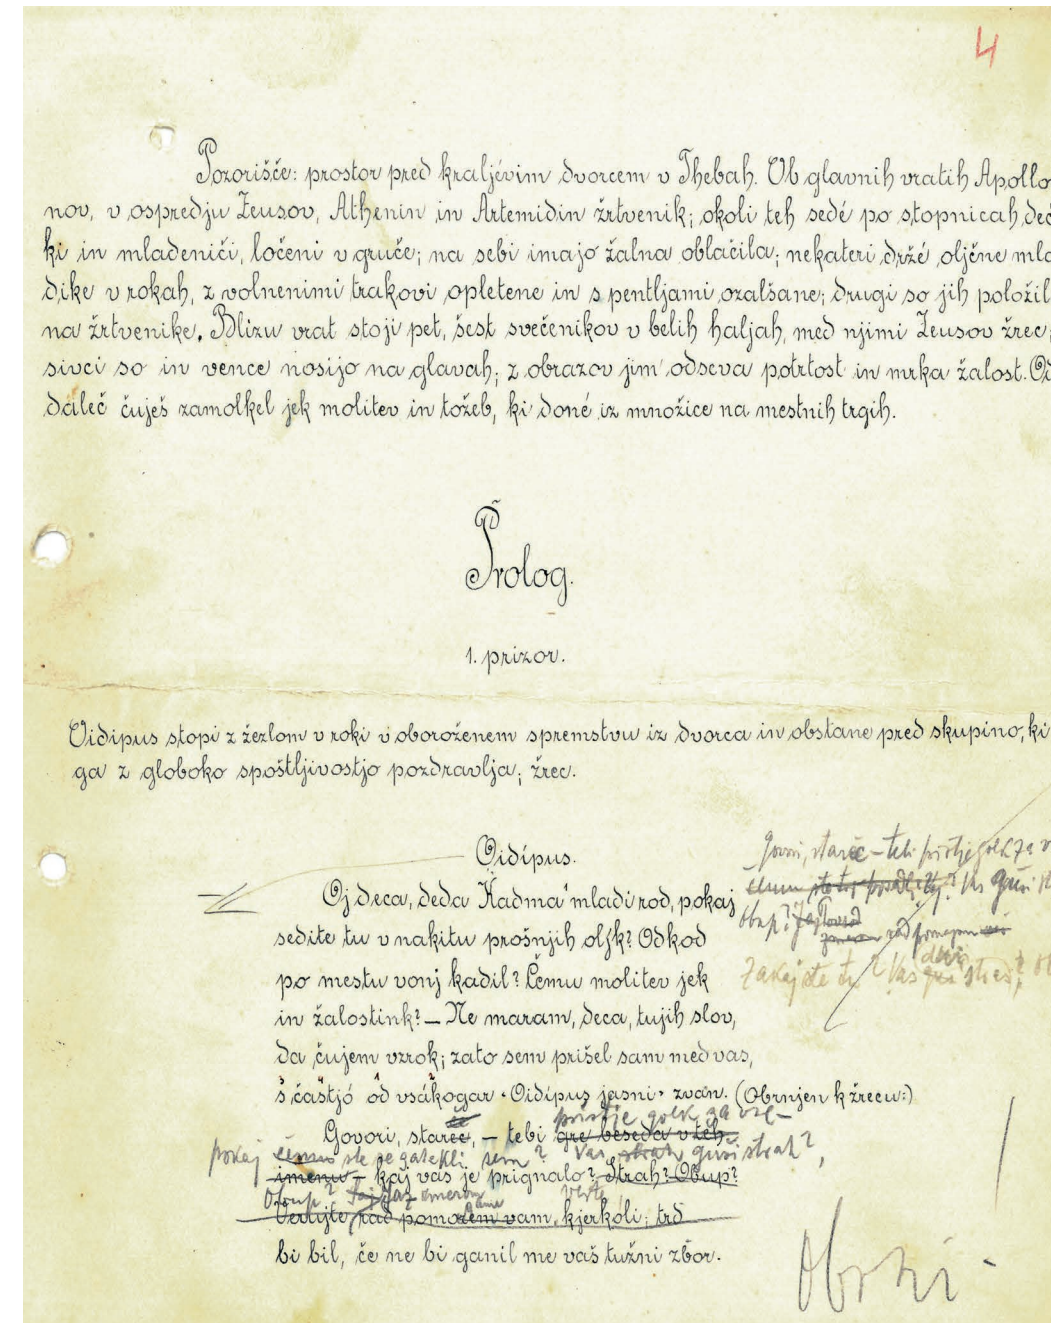 4
Pozorišče: prostor pred kraljévim dvorcem v Thebah. Ob glavnih vratih Apollo
nov, v ospredju Zeusov, Athenin in Artemidin žrtvenik; okoli teh sedé po stopnicah deč
ki in mladeniči, ločeni v gruče; na sebi imajo žalna oblačila; nekateri držé oljčne mla
dike v rokah, z volnenimi trakovi opletene in s pentljami ozalšane; drugi so jih položil
na žrtvenike. Blizu vrat stoji pet, šest svečenikov v belih haljah, med njimi Zeusov žrec;
sivci so in vence nosijo na glavah; z obrazov jim odseva potrtost in mrka žalost. Od
daleč čuješ zamolkel jek molitev in tožeb, ki doné iz množice na mestnih trgih.
Prolog.
1. prizor.
Oidipus stopi z žezlom v roki v oboroženem spremstvu iz dvorca in obstane pred skupino, ki
ga z globoko spoštljivostjo pozdravlja; žrec.
Oidípus.
Oj deca, deda Kadma mladi rod, pokaj
sedite tu v nakitu prošnjih oljk? Odkod
po mestu vonj kadil? Čemu molitev jek
in žalostink? – Ne maram, deca, tujih slov,
da čujem vzrok; zato sem prišel sam med vas,
s častjó od vsákogar "Oidípus jasni" zván. (Obrnjen k žrecu:)
Govori, starče – tebi pristje
Zakaj ste tu? Vas
pristje golk za vse –
Govori, starče, – tebi gre beseda v teh
pokaj čemu ste se zatekli sem? Vas strah guši strah?,
imenu – kaj vas je prignalo? Strah? Obup?
Obup?
Verujte, rad pomorem vam, kjerkóli; trd
bi bil, če ne bi ganil me vaš tužni zbor.
Obrni –